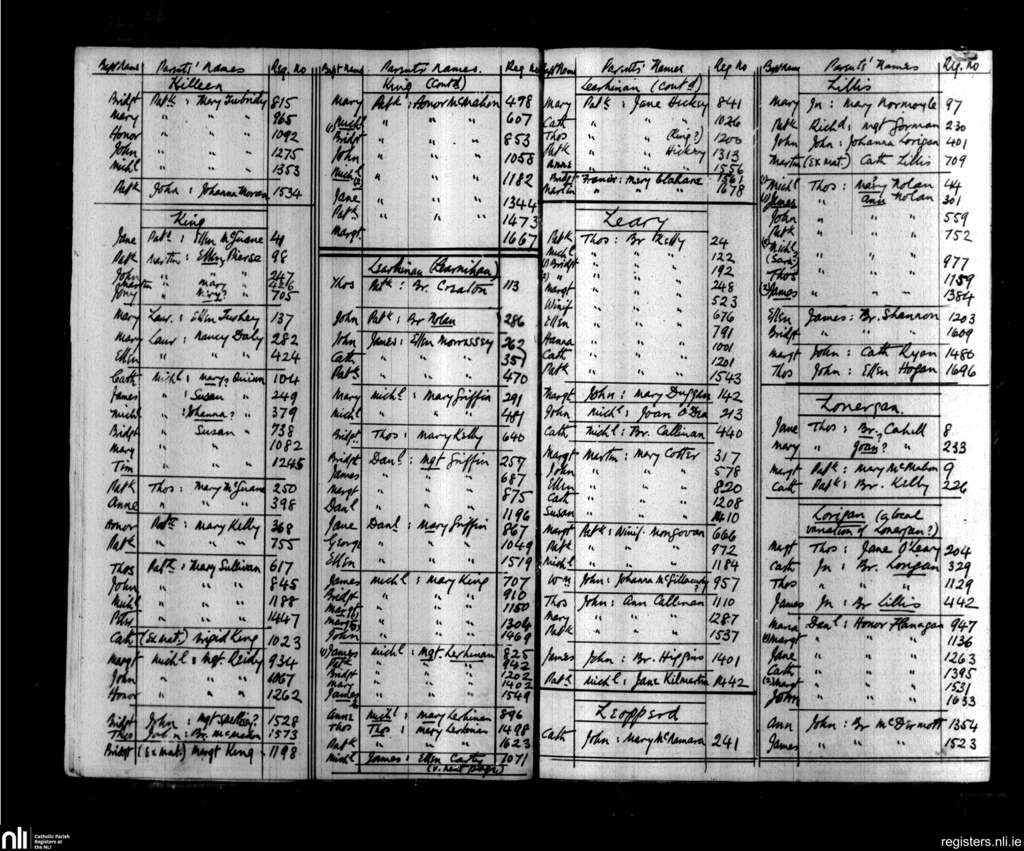 Bapt Name Parents' Names Reg. No
Killeen
Bridpt Patk : Mary Cusnihy 815
Mary " " " 965
Honor " " " 1092
John " " " 1275
Michl " " " 1353
Patk John : Johanna Moran 1534
King
Jane Patk : Ellen McGuane 41
Patk Martin : Ellen Pierse 98
John " " " 247
Martin " Mary " 426
Jony " Mary? " 705
Mary Laur : Ellen 137
Mary Laur : Nancy Daly 282
Ellen " " " 424
Cath Michl : Mary? Quinn 104
James " : Susan " 249
Michl " : Johanna? " 379
Bridpt " Susan " 738
Mary " " " 1082
Tim " " " 1245
Patk Thos : Mary McGuane 250
Anne " " " 398
Honor Patk : Mary Kelly 368
Patk " " " 755
Thos Patk : Mary Sullivan 617
John " " " 845
Michl " " " 1188
Patk " " " 1447
Cath (Ex mat.) Brigid King 1023
Margt Michl : Mgt. Reidy 934
John " " " 1067
Honor " " " 1262
Bridpt John : Mgt 1528
Thos John : Br. McMahon 1573
Bridpt (Ex mat.) Margt King 1198
Bapt Name Parents' Names. Reg No
King (Contd)
Mary Patk : Honor McMahon 498
(1) Michl " " " 607
Bridpt " " " 853
John " " " 1058
Michl (2) " " " 1182
Jane " " " 1344
Patk " " " 1473
Margt 1667
Leahinan (Learnihan)
Thos Patk : Br. Coxaton 113
John Patk : Br Nolan 286
John James : Ellen Morrassey 262
Cath " " " 357
Patk " " " 470
Mary Michl : Mary Griffin 291
Michl " " " 481
Bridpt Thos : Mary Kelly 640
Bridpt Danl : Mgt Griffin 257
James " " " 687
Margt " " " 875
Danl " " " 1196
Jane Danl : Mary Griffin 867
George " " " 1049
Ellen " " " 1519
James Michl : Mary King 707
Bridpt " " " 910
Margt " " " 1150
Margt(2) " " " 1304
John " " " 1469
(1) James Michl : Mgt. Lershinan 825
Patk " " " 942
Bridpt " " " 1202
Michl " " " 1402
James " " " 1549
Anne Michl : Mary Lershinan 896
Thos Thos : Mary Lershinan 1498
Patk " " " 1623
Michl James : Ellen Carty 1071
(v. next page)
Bapt Name Parents' Names Reg No
Leahinan (Contd)
Mary Patk : Jane Hickey 841
Cath " " 1026
Thos " " (King?) 1200
Patk " " Hickey 1313
Anne " " 1556
Bridpt Francis : Mary Clohane 1561
Martin " " " 1678
Leary
Patk Thos : Br Kelly 24
Michl " " " 122
(1) Bridpt " " " 192
Margt " " " 248
Winif " " " 523
Ellen " " " 676
Hanna " " " 791
Cath " " " 1001
Patk " " " 1201
1543
Margt John : Mary Duggan 142
John Michl : Joan O'Dea 213
Cath Michl : Br. Callinan 440
Margt Martin : Mary Cotter 317
John " " " 578
Ellen " " " 820
Cath " " " 1208
Susan " " " 1410
Margt Patk : Winif. Mongovan 666
Patk " " " 972
Michl " " " 1184
Wm John : Johanna McGillacuddy 957
Thos John : Ann Callinan 1110
Mary " " " 1287
Patk " " " 1537
James John : Br. Higgins 1401
Patk Michl : Jane Kilmartin 1442
Leopperd
Cath John : Mary McNamara 241
Bapt Name Parents' Names Reg. No
Lillis
Mary Jn : Mary Normoyle 97
Patk Richd : Mgt Gorman 230
John John : Johanna Lorigan 401
Martin (Ex mat.) Cath Lillis 709
(1) Michl Thos : Mary Nolan 44
(1) James " Ann Nolan 301
John " " 559
Patk " " 752
(2) Michl " "
(Sara?) " " 977
Thos " " 1159
(2) James " " " 1384
Ellen James : Br. Shannon 1203
Bridpt " " " 1609
Margt John : Cath Ryan 1486
Thos John : Ellen Hogan 1696
Lonergan.
Jane Thos : Br. Cahill 8
Mary " Joan? " 233
Margt Patk : Mary McMahon 9
Cath Patk : Br. Kelly 226
Lorigan (a local
variation of Lonergan?)
Margt Thos : Jane O'Leary 204
Cath Jn : Br. Lorigan 329
Thos " " " 1129
James Jn : Br Lillis 442
Maria Danl : Honor Flanagan 947
(1) Margt " " " 1136
Jane " " " 1263
Cath " " " 1395
(2) Margt " " " 1531
John " " " 1633
Ann John : Br McDermott 1354
James " " " 1523
nli Catholic Parish
Registers at
the NLI
registers.nli.ie